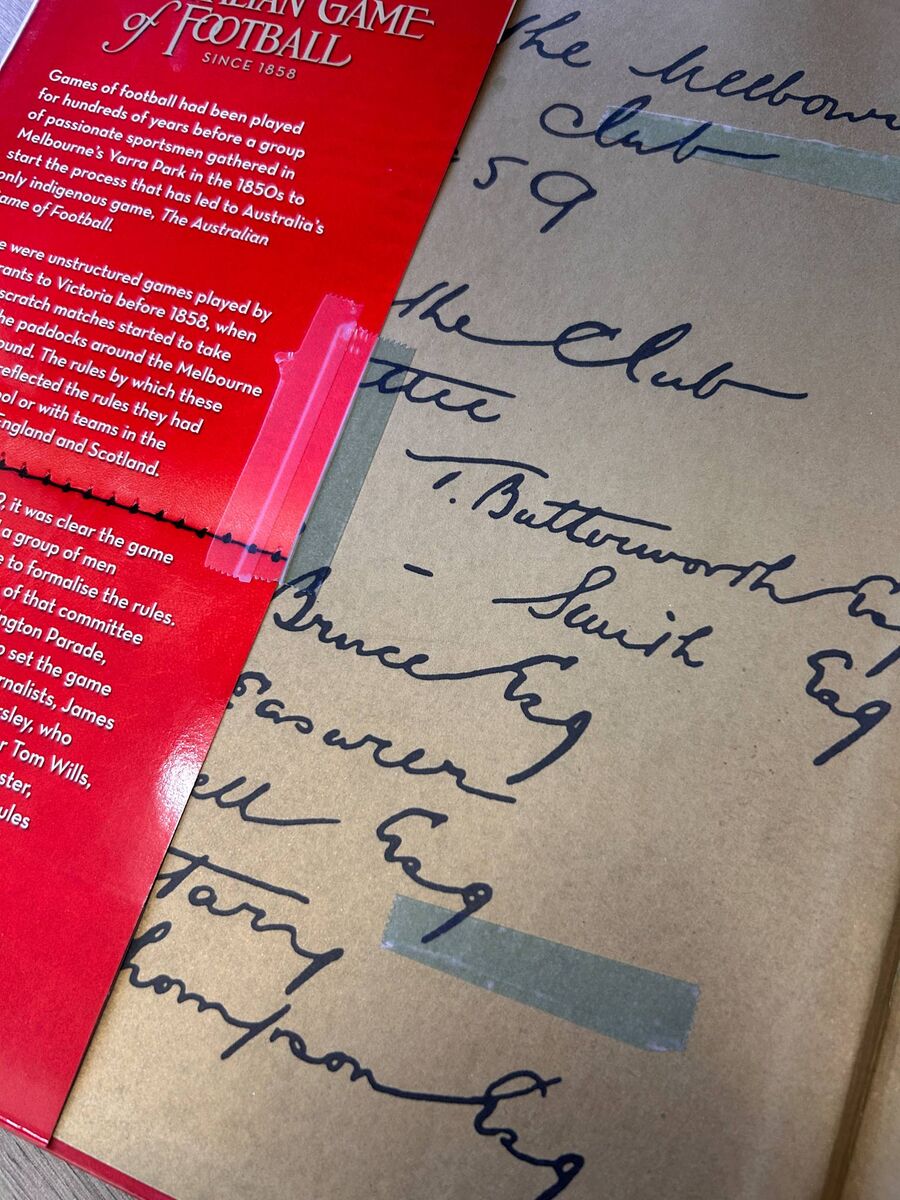 ALIAN GAME
of FOOTBALL
SINCE 1858
Games of football had been played
for hundreds of years before a group
of passionate sportsmen gathered in
Melbourne's Yarra Park in the 1850s to
start the process that has led to Australia's
only indigenous game, The Australian
ame of Football.
e were unstructured games played by
rants to Victoria before 1858, when
scratch matches started to take
he paddocks around the Melbourne
ound. The rules by which these
reflected the rules they had
ool or with teams in the
England and Scotland.
9, it was clear the game
a group of men
e to formalise the rules.
of that committee
ngton Parade,
o set the game
rnalists, James
rsley, who
r Tom Wills,
ster,
ules
The Melbourn
Club
59
the Club
ttee
T. Butterworth Esq
- Smith Esq
Bruce Esq
easurer
ell Esq
tary
hompson Esq